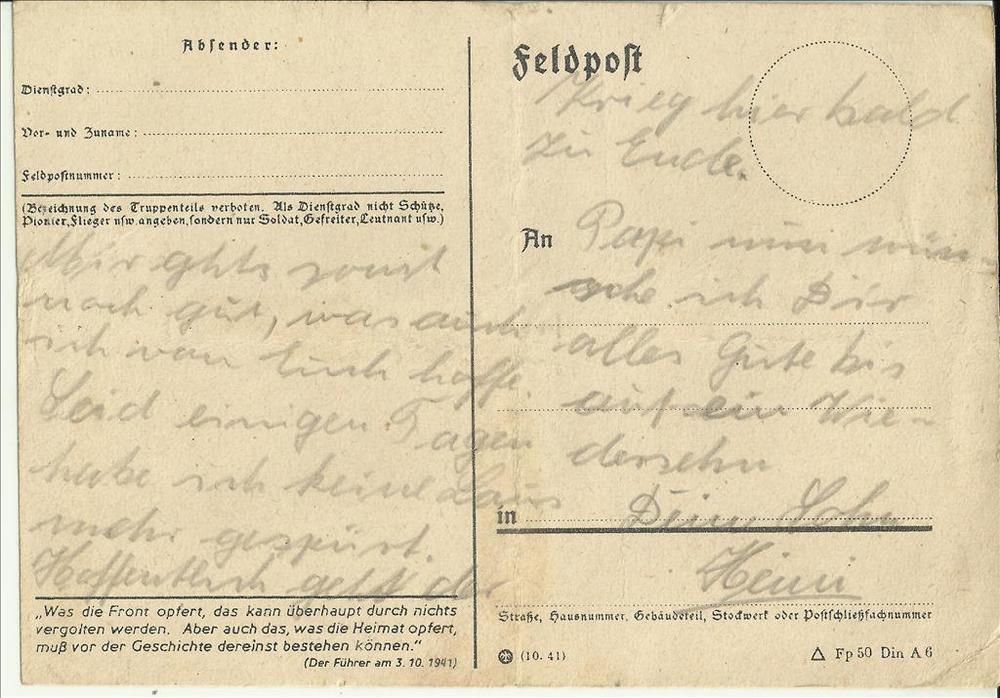 Absender:
Dienstgrad:
Vor- und Zuname:
Feldpostnummer:
(Bezeichnung des Truppenteils verboten. Als Dienstgrad nicht Schütze,
Pionier, Flieger usw. angeben, sondern nur Soldat, Gefreiter, Leutnant usw.)
Mir ghts sonst
noch gut, was auch
ich von Euch hoffe.
Seid einigen Tagen
habe ich keine Laus
mehr gespürt.
Hoffentlich geht der
„Was die Front opfert, das kann überhaupt durch nichts
vergolten werden. Aber auch das, was die Heimat opfert,
muß vor der Geschichte dereinst bestehen können.“
(Der Führer am 3. 10. 1941)
Feldpost
Krieg hier bald
zu Ende.
An Papi nun wün-
sche ich Dir
alles Gute bis
auf ein Wie-
dersehn
in Dein Sohn
Heini
Straße, Hausnummer, Gebäudeteil, Stockwerk oder Postschließfachnummer
(10. 41)
△ Fp 50 Din A 6